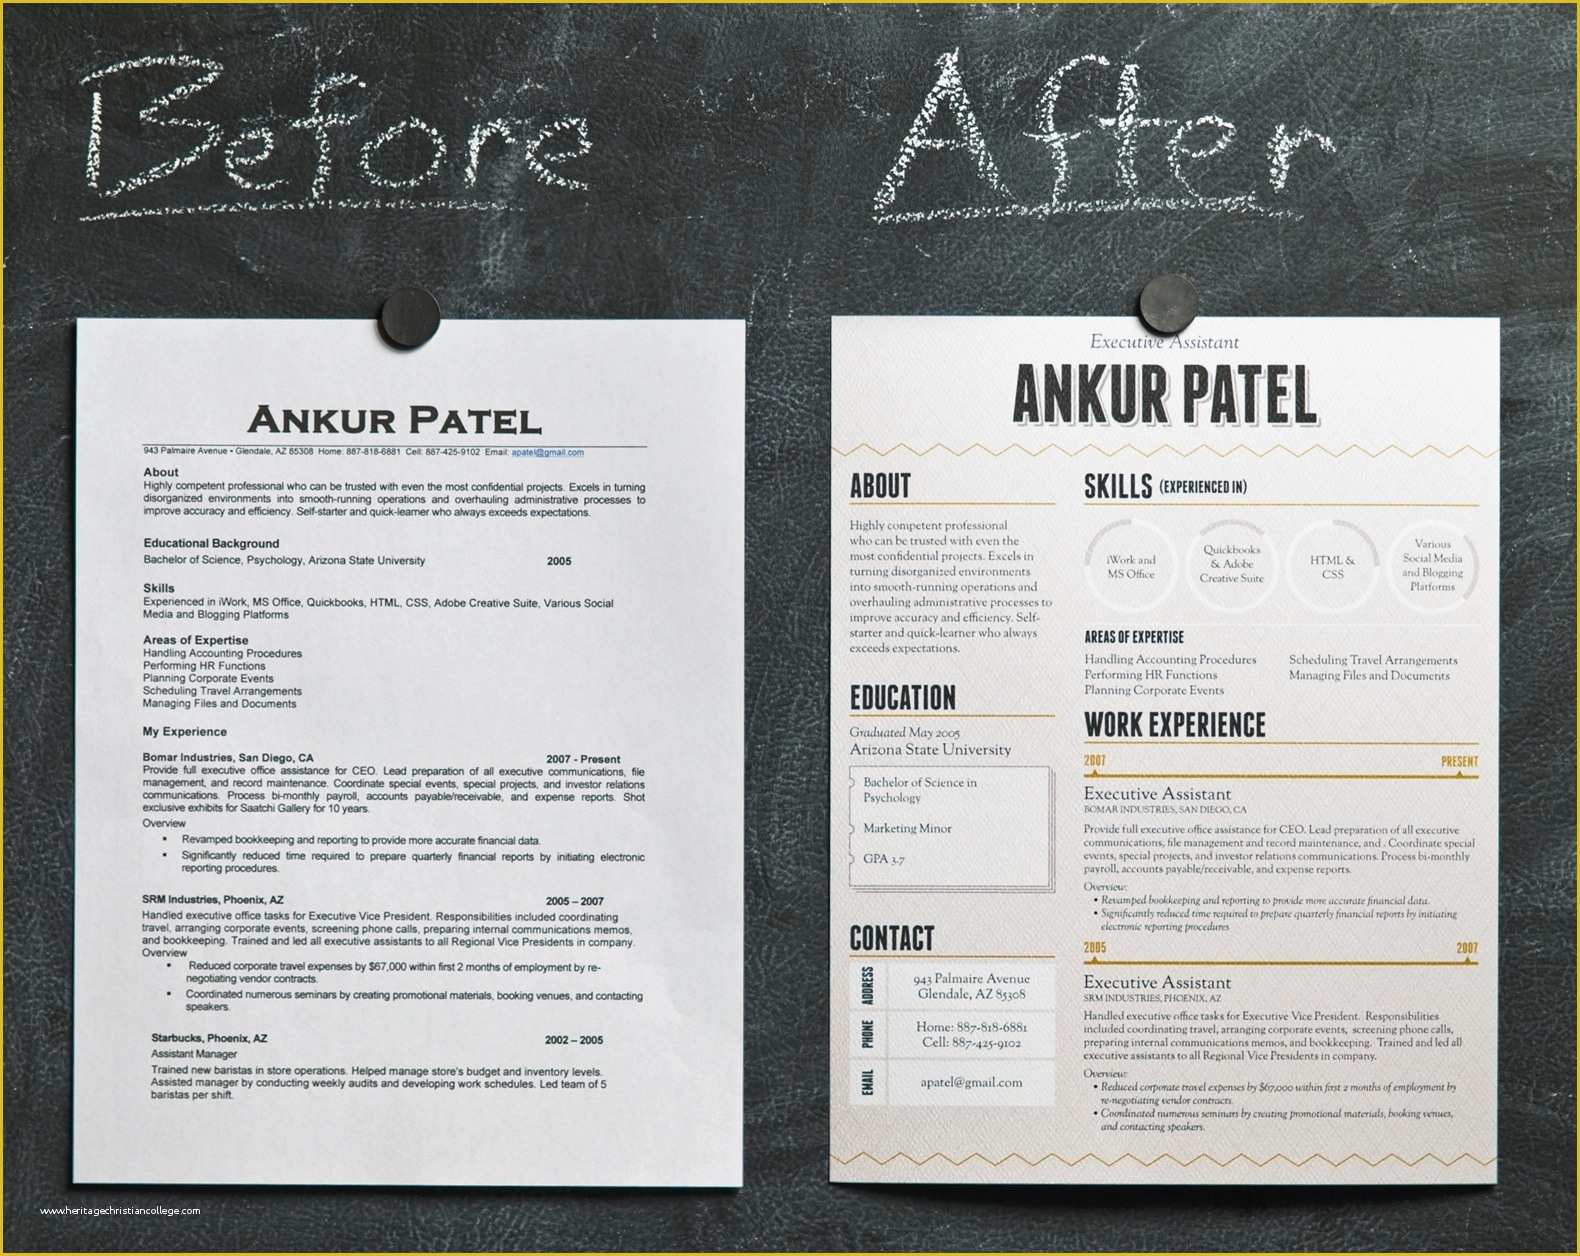 Before
After
ANKUR PATEL
943 Palmaire Avenue • Glendale, AZ 85308 Home: 887-818-6881 Cell: 887-425-9102 Email: apatel@gmail.com
About
Highly competent professional who can be trusted with even the most confidential projects. Excels in turning
disorganized environments into smooth-running operations and overhauling administrative processes to
improve accuracy and efficiency. Self-starter and quick-learner who always exceeds expectations.
Educational Background
Bachelor of Science, Psychology, Arizona State University 2005
Skills
Experienced in iWork, MS Office, Quickbooks, HTML, CSS, Adobe Creative Suite, Various Social
Media and Blogging Platforms
Areas of Expertise
Handling Accounting Procedures
Performing HR Functions
Planning Corporate Events
Scheduling Travel Arrangements
Managing Files and Documents
My Experience
Bomar Industries, San Diego, CA 2007 - Present
Provide full executive office assistance for CEO. Lead preparation of all executive communications, file
management, and record maintenance. Coordinate special events, special projects, and investor relations
communications. Process bi-monthly payroll, accounts payable/receivable, and expense reports. Shot
exclusive exhibits for Saatchi Gallery for 10 years.
Overview
▪ Revamped bookkeeping and reporting to provide more accurate financial data.
▪ Significantly reduced time required to prepare quarterly financial reports by initiating electronic
reporting procedures.
SRM Industries, Phoenix, AZ 2005 – 2007
Handled executive office tasks for Executive Vice President. Responsibilities included coordinating
travel, arranging corporate events, screening phone calls, preparing internal communications memos,
and bookkeeping. Trained and led all executive assistants to all Regional Vice Presidents in company.
Overview
▪ Reduced corporate travel expenses by $67,000 within first 2 months of employment by re-
negotiating vendor contracts.
▪ Coordinated numerous seminars by creating promotional materials, booking venues, and contacting
speakers.
Starbucks, Phoenix, AZ 2002 – 2005
Assistant Manager
Trained new baristas in store operations. Helped manage store's budget and inventory levels.
Assisted manager by conducting weekly audits and developing work schedules. Led team of 5
baristas per shift.
Executive Assistant
ANKUR PATEL
ABOUT
Highly competent professional
who can be trusted with even the
most confidential projects. Excels in
turning disorganized environments
into smooth-running operations and
overhauling administrative processes to
improve accuracy and efficiency. Self-
starter and quick-learner who always
exceeds expectations.
EDUCATION
Graduated May 2005
Arizona State University
Bachelor of Science in
Psychology
Marketing Minor
GPA 3.7
CONTACT
ADDRESS
943 Palmaire Avenue
Glendale, AZ 85308
PHONE
Home: 887-818-6881
Cell: 887-425-9102
EMAIL
apatel@gmail.com
SKILLS (EXPERIENCED IN)
iWork and
MS Office
Quickbooks
& Adobe
Creative Suite
HTML &
CSS
Various
Social Media
and Blogging
Platforms
AREAS OF EXPERTISE
Handling Accounting Procedures
Performing HR Functions
Planning Corporate Events
Scheduling Travel Arrangements
Managing Files and Documents
WORK EXPERIENCE
2007 PRESENT
Executive Assistant
BOMAR INDUSTRIES, SAN DIEGO, CA
Provide full executive office assistance for CEO. Lead preparation of all executive
communications, file management and record maintenance, and . Coordinate special
events, special projects, and investor relations communications. Process bi-monthly
payroll, accounts payable/receivable, and expense reports.
Overview:
• Revamped bookkeeping and reporting to provide more accurate financial data.
• Significantly reduced time required to prepare quarterly financial reports by initiating
electronic reporting procedures
2005 2007
Executive Assistant
SRM INDUSTRIES, PHOENIX, AZ
Handled executive office tasks for Executive Vice President. Responsibilities
included coordinating travel, arranging corporate events, screening phone calls,
preparing internal communications memos, and bookkeeping. Trained and led all
executive assistants to all Regional Vice Presidents in company.
Overview:
• Reduced corporate travel expenses by $67,000 within first 2 months of employment by
re-negotiating vendor contracts.
• Coordinated numerous seminars by creating promotional materials, booking venues,
and contacting speakers.
www.heritagechristiancollege.com